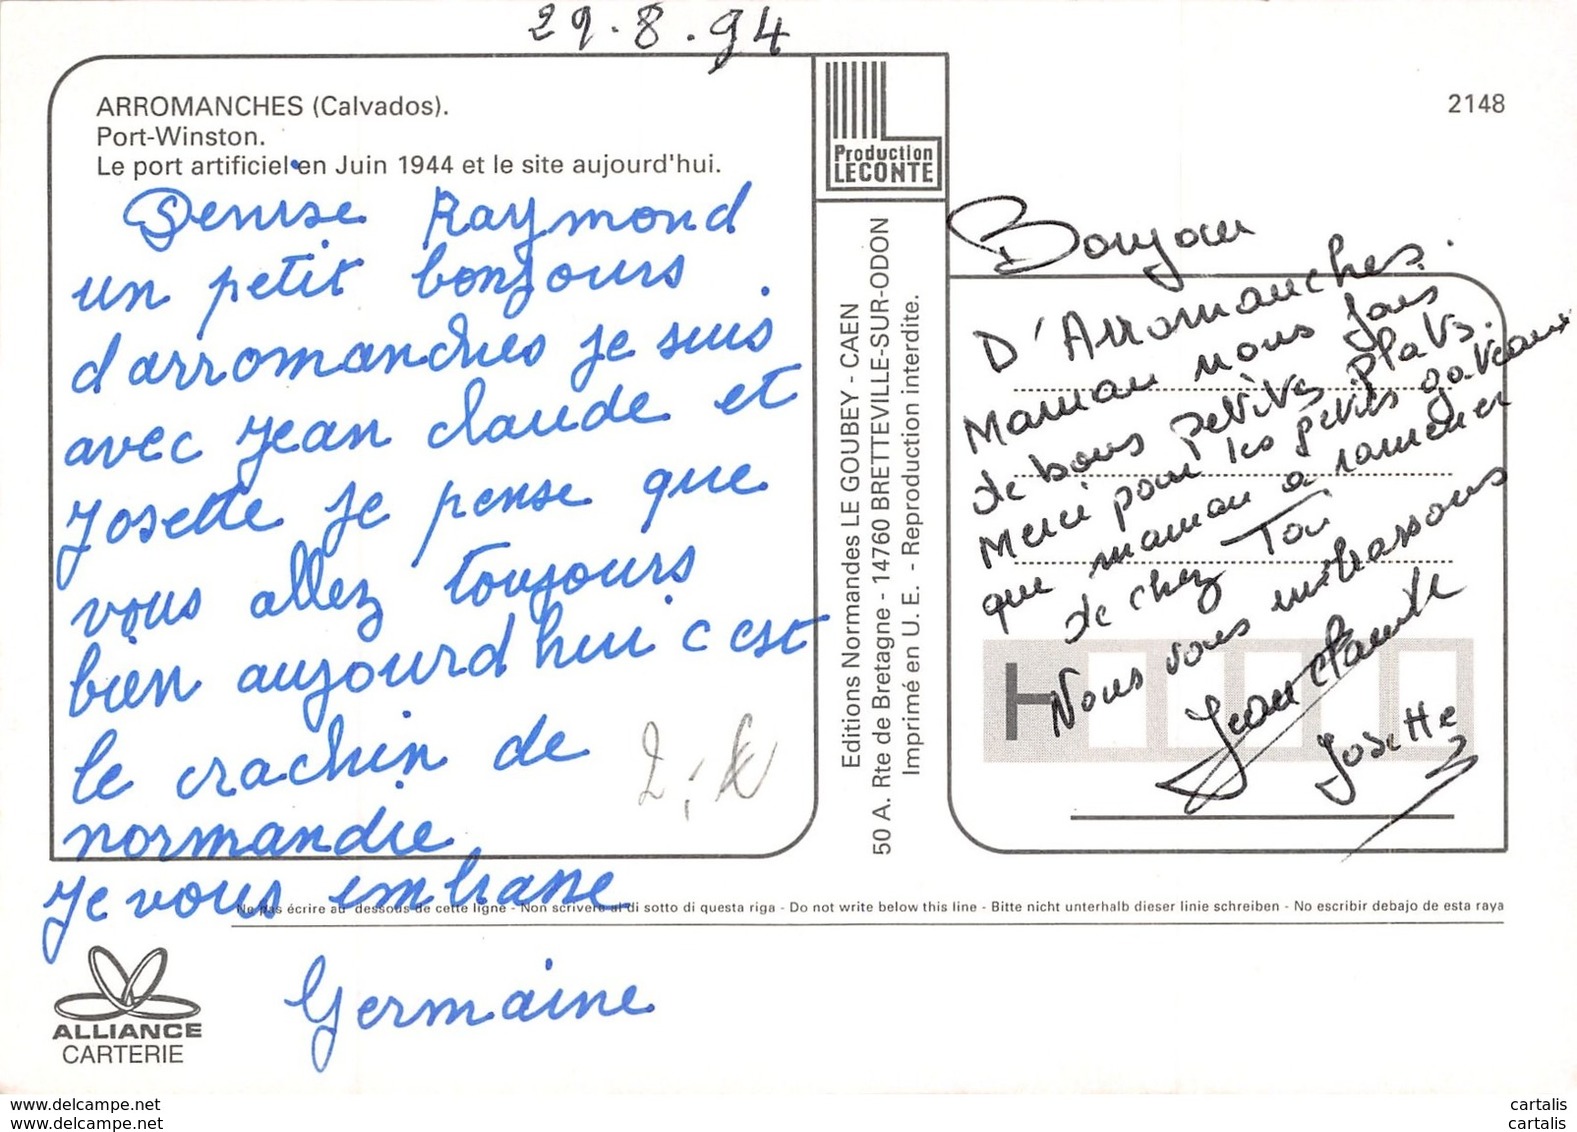 29.8.94
ARROMANCHES (Calvados).
Port-Winston.
Le port artificiel en Juin 1944 et le site aujourd'hui.
Denise Raymond
un petit bonjours
d'arromanches je suis
avec jean claude et
Josette je pense que
vous allez toujours
bien aujourd hui c est
le crachin de
normandie
je vous embrasse
Germaine
Production
LECONTE
Editions Normandes LE GOUBEY - CAEN
50 A. Rte de Bretagne - 14760 BRETTEVILLE-SUR-ODON
Imprimé en U. E. - Reproduction interdite.
2148
Bonjour
D'Arromanches.
Maman nous fais
de bons petits plats.
Merci pour les petits gateaux
que maman a ramener
de chez Toi
Nous vous embrassons
Jean Claude
Josette
Ne pas écrire au dessous de cette ligne - Non scrivere al di sotto di questa riga - Do not write below this line - Bitte nicht unterhalb dieser linie schreiben - No escribir debajo de esta raya
ALLIANCE
CARTERIE
www.delcampe.net
www.delcampe.net
cartalis
cartalis